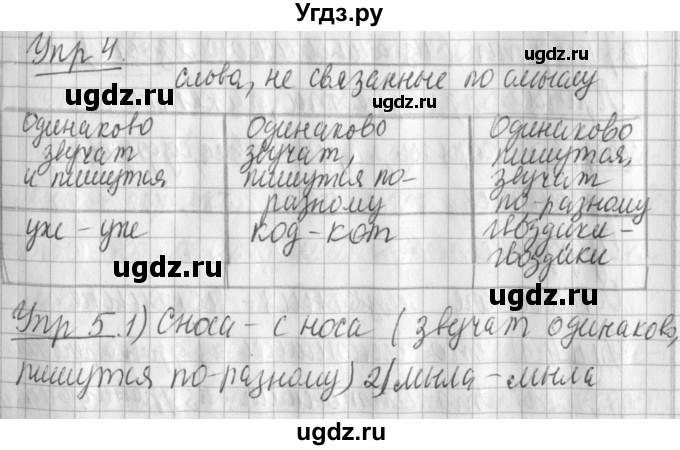 Угдз.ру
Упр 4.
слова, не связанные по смыслу
ugdz.ru
ugdz.ru
Одинаково звучат и пишутся
Одинаково звучат, пишутся по-разному
Одинаково пишутся, звучат по-разному
ugdz.ru
ugdz.ru
уж - уж
код - кот
гвоздики - гвоздики
ugdz.ru
ugdz.ru
Упр 5. 1) Сноса - с носа ( звучат одинаково,
ugdz.ru
ugdz.ru
пишутся по-разному) 2) мыла - мыла
ugdz.ru
ugdz.ru